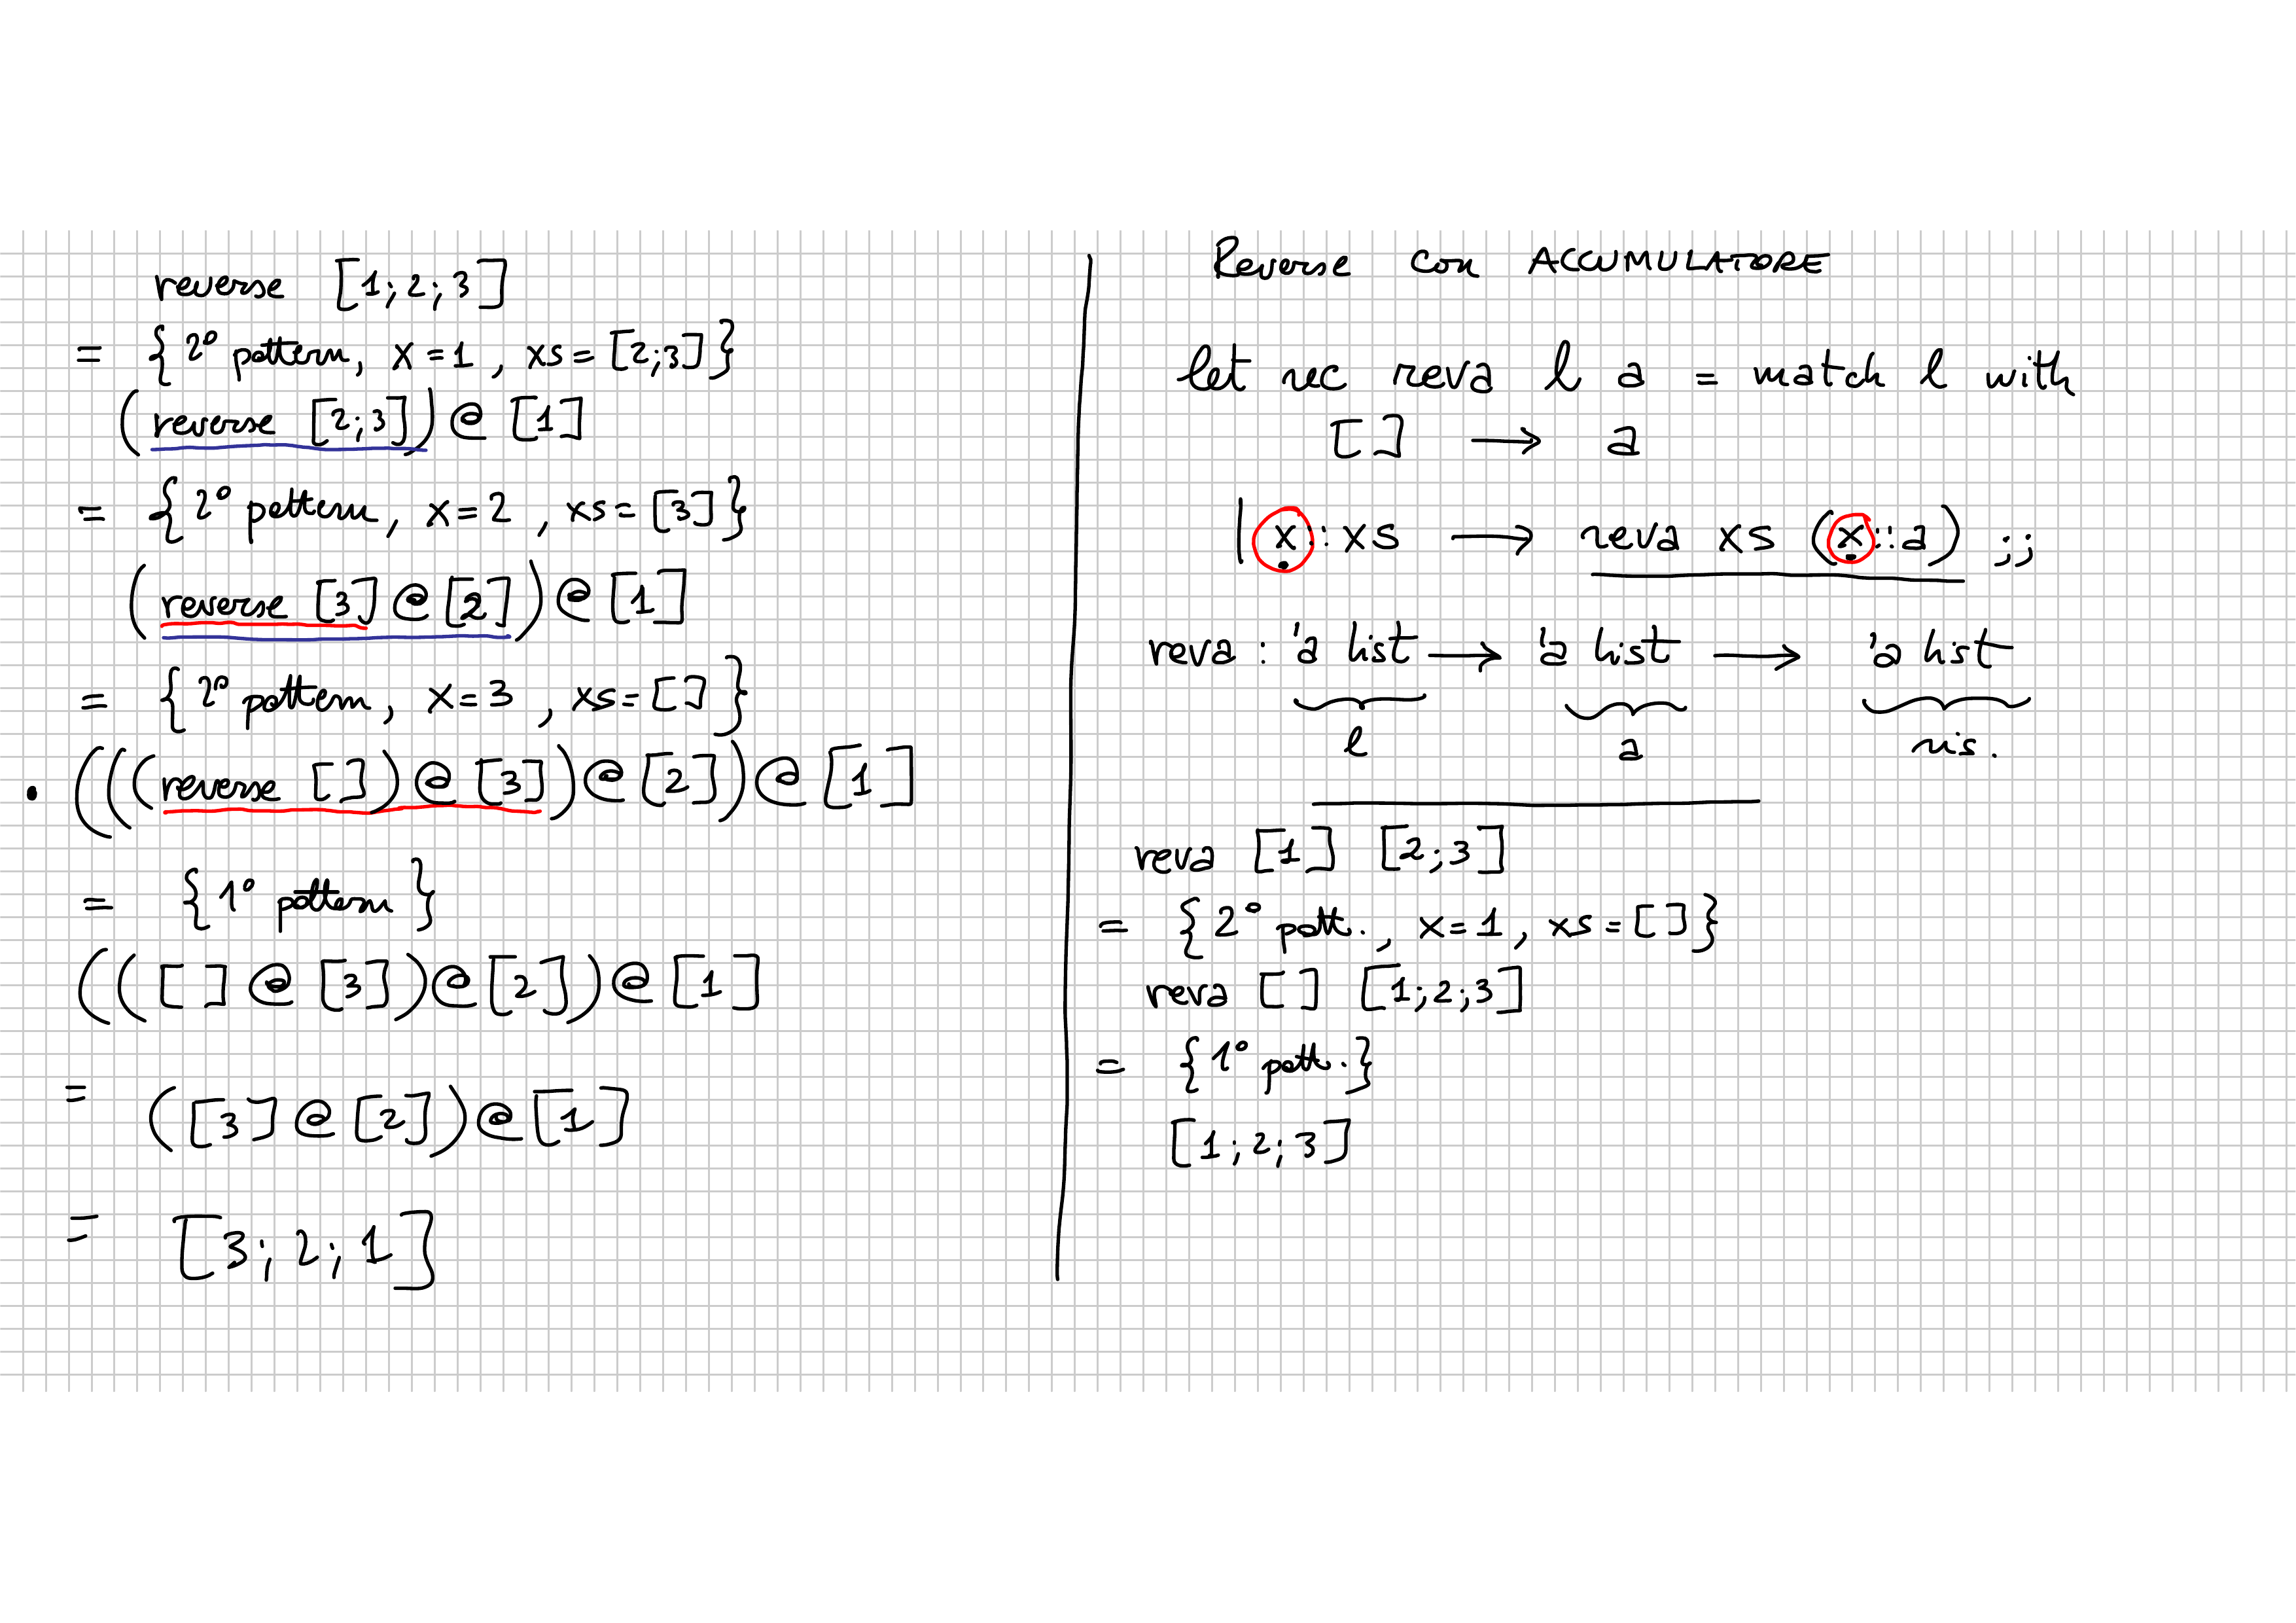 reverse [1;2;3]
= {2° pattern, x=1, xs=[2;3]}
(reverse [2;3])@[1]
= {2° pattern, x=2, xs=[3]}
(reverse [3]@[2])@[1]
= {2° pattern, x=3, xs=[]}
. (((reverse [])@[3])@[2])@[1]
= {1° pattern}
((([]@[3])@[2])@[1]
= ([3]@[2])@[1]
= [3;2;1]
Reverse con ACCUMULATORE
let rec reva l a = match l with
[] → a
| x::xs → reva xs (x::a) ;;
reva : 'a list → 'a list → 'a list
l a ris.
reva [1] [2;3]
= {2° patt., x=1, xs=[]}
reva [] [1;2;3]
= {1° patt.}
[1;2;3]